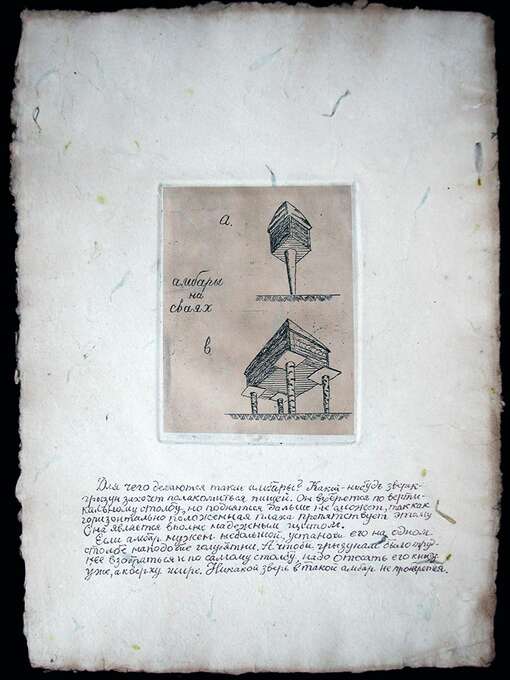 а.
амбары
на
сваях
в
Для чего делаются такие амбары? Какой-нибудь зверёк-
грызун захочет полакомиться пищей. Он взберётся по верти-
кальному столбу, но подняться дальше не сможет, так как
горизонтально положенная плаха препятствует этому
Она является вполне надежным щитом.
Если амбар нужен небольшой, установи его на одном
столбе наподобие голубятни. А чтобы грызунам было труд-
нее взобраться и по самому столбу, надо отесать его книзу
уже, а кверху шире. Никакой зверь в такой амбар не проберется.